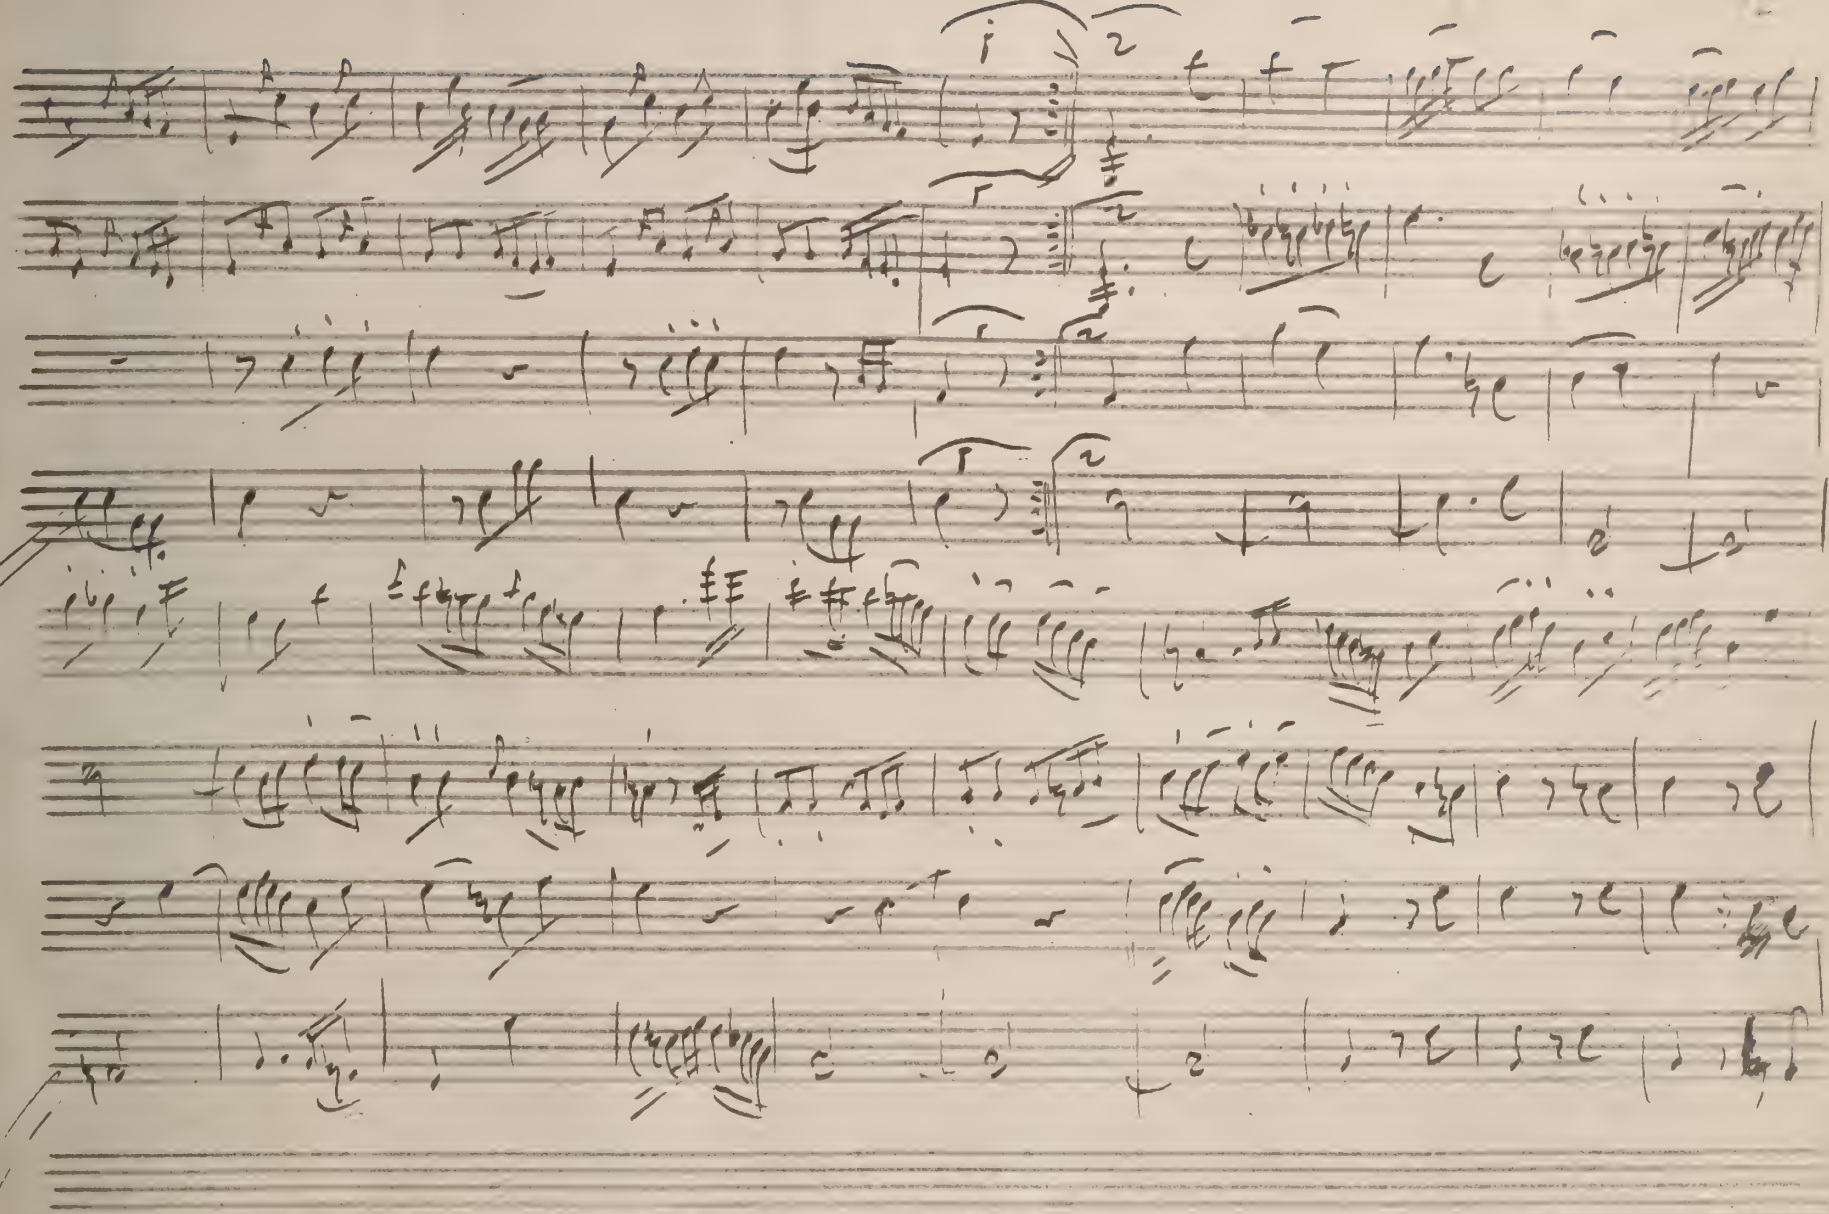 1 2
1 2
1 2
1 2